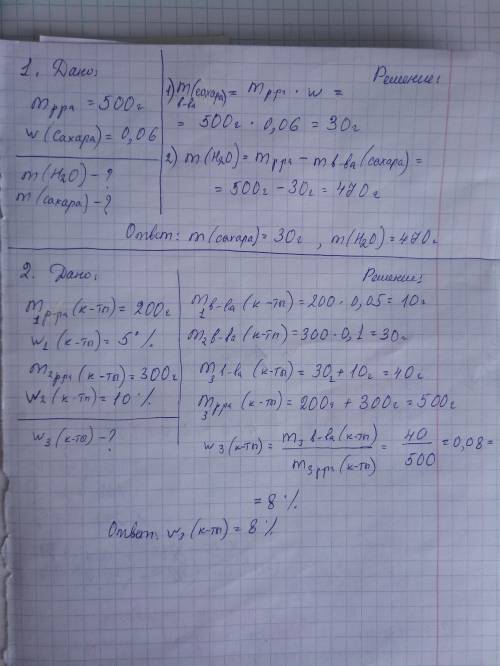 1. Дано: Решение:
mрра = 500г
w(сахара) = 0,06
m(H2O) - ?
m(сахара) - ?
1) m в-ва (сахара) = mрра · w =
= 500г · 0,06 = 30г
2) m(H2O) = mрра - mв-ва(сахара) =
= 500г - 30г = 470г
Ответ: m(сахара) = 30г, m(H2O) = 470г
2. Дано: Решение:
m1р-ра(к-ты) = 200г
w1(к-ты) = 5%
m2рра(к-ты) = 300г
w2(к-ты) = 10%
w3(к-ты) - ?
m1в-ва(к-ты) = 200 · 0,05 = 10г
m2в-ва(к-ты) = 300 · 0,1 = 30г
m3в-ва(к-ты) = 30г + 10г = 40г
m3рра(к-ты) = 200г + 300г = 500г
w3(к-ты) = m3в-ва(к-ты) / m3рра(к-ты) = 40 / 500 = 0,08 =
= 8%
Ответ: w3(к-ты) = 8%